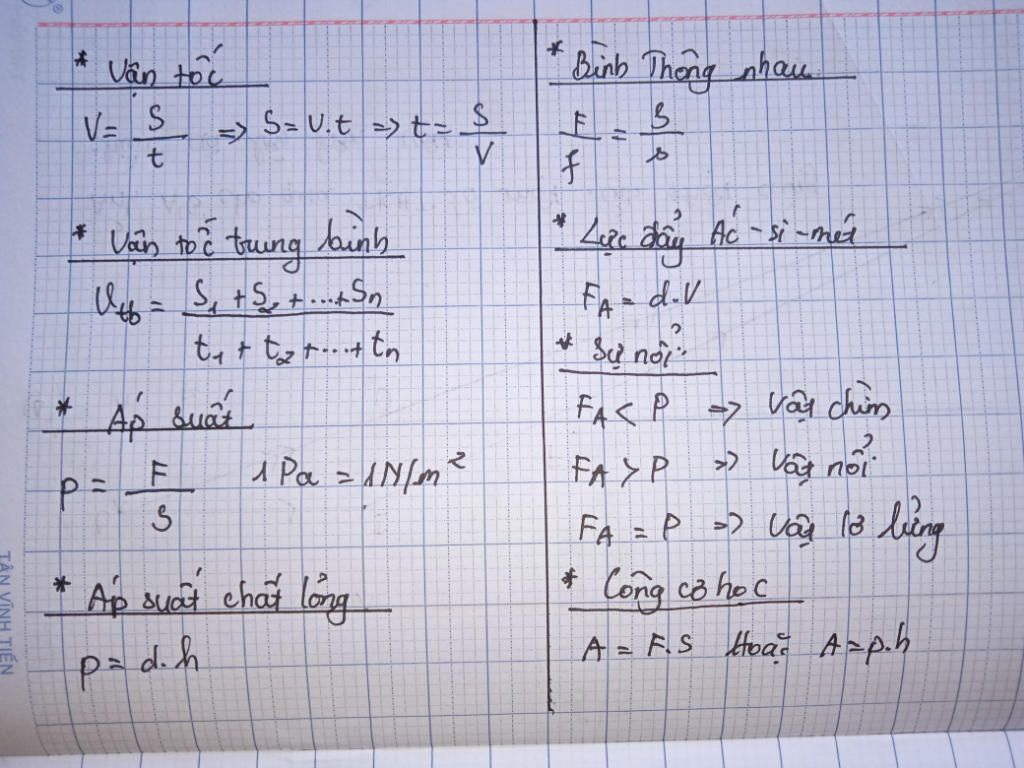 * Vận tốc
V = S/t => S = v.t => t = S/V
* Vận tốc trung bình
Vtb = S1 + S2 + ... + Sn / t1 + t2 + ... + tn
* Áp suất
p = F/S 1 Pa = 1N/m²
* Áp suất chất lỏng
p = d.h
* Bình Thông nhau
F/f = S/s
* Lực đẩy Ác-si-mét
FA = d.V
* Sự nổi:
FA < P => Vật chìm
FA > P => Vật nổi.
FA = P => Vật lơ lửng
* Công cơ học
A = F.S Hoặc A = p.h
TÂN VĨNH TIẾN